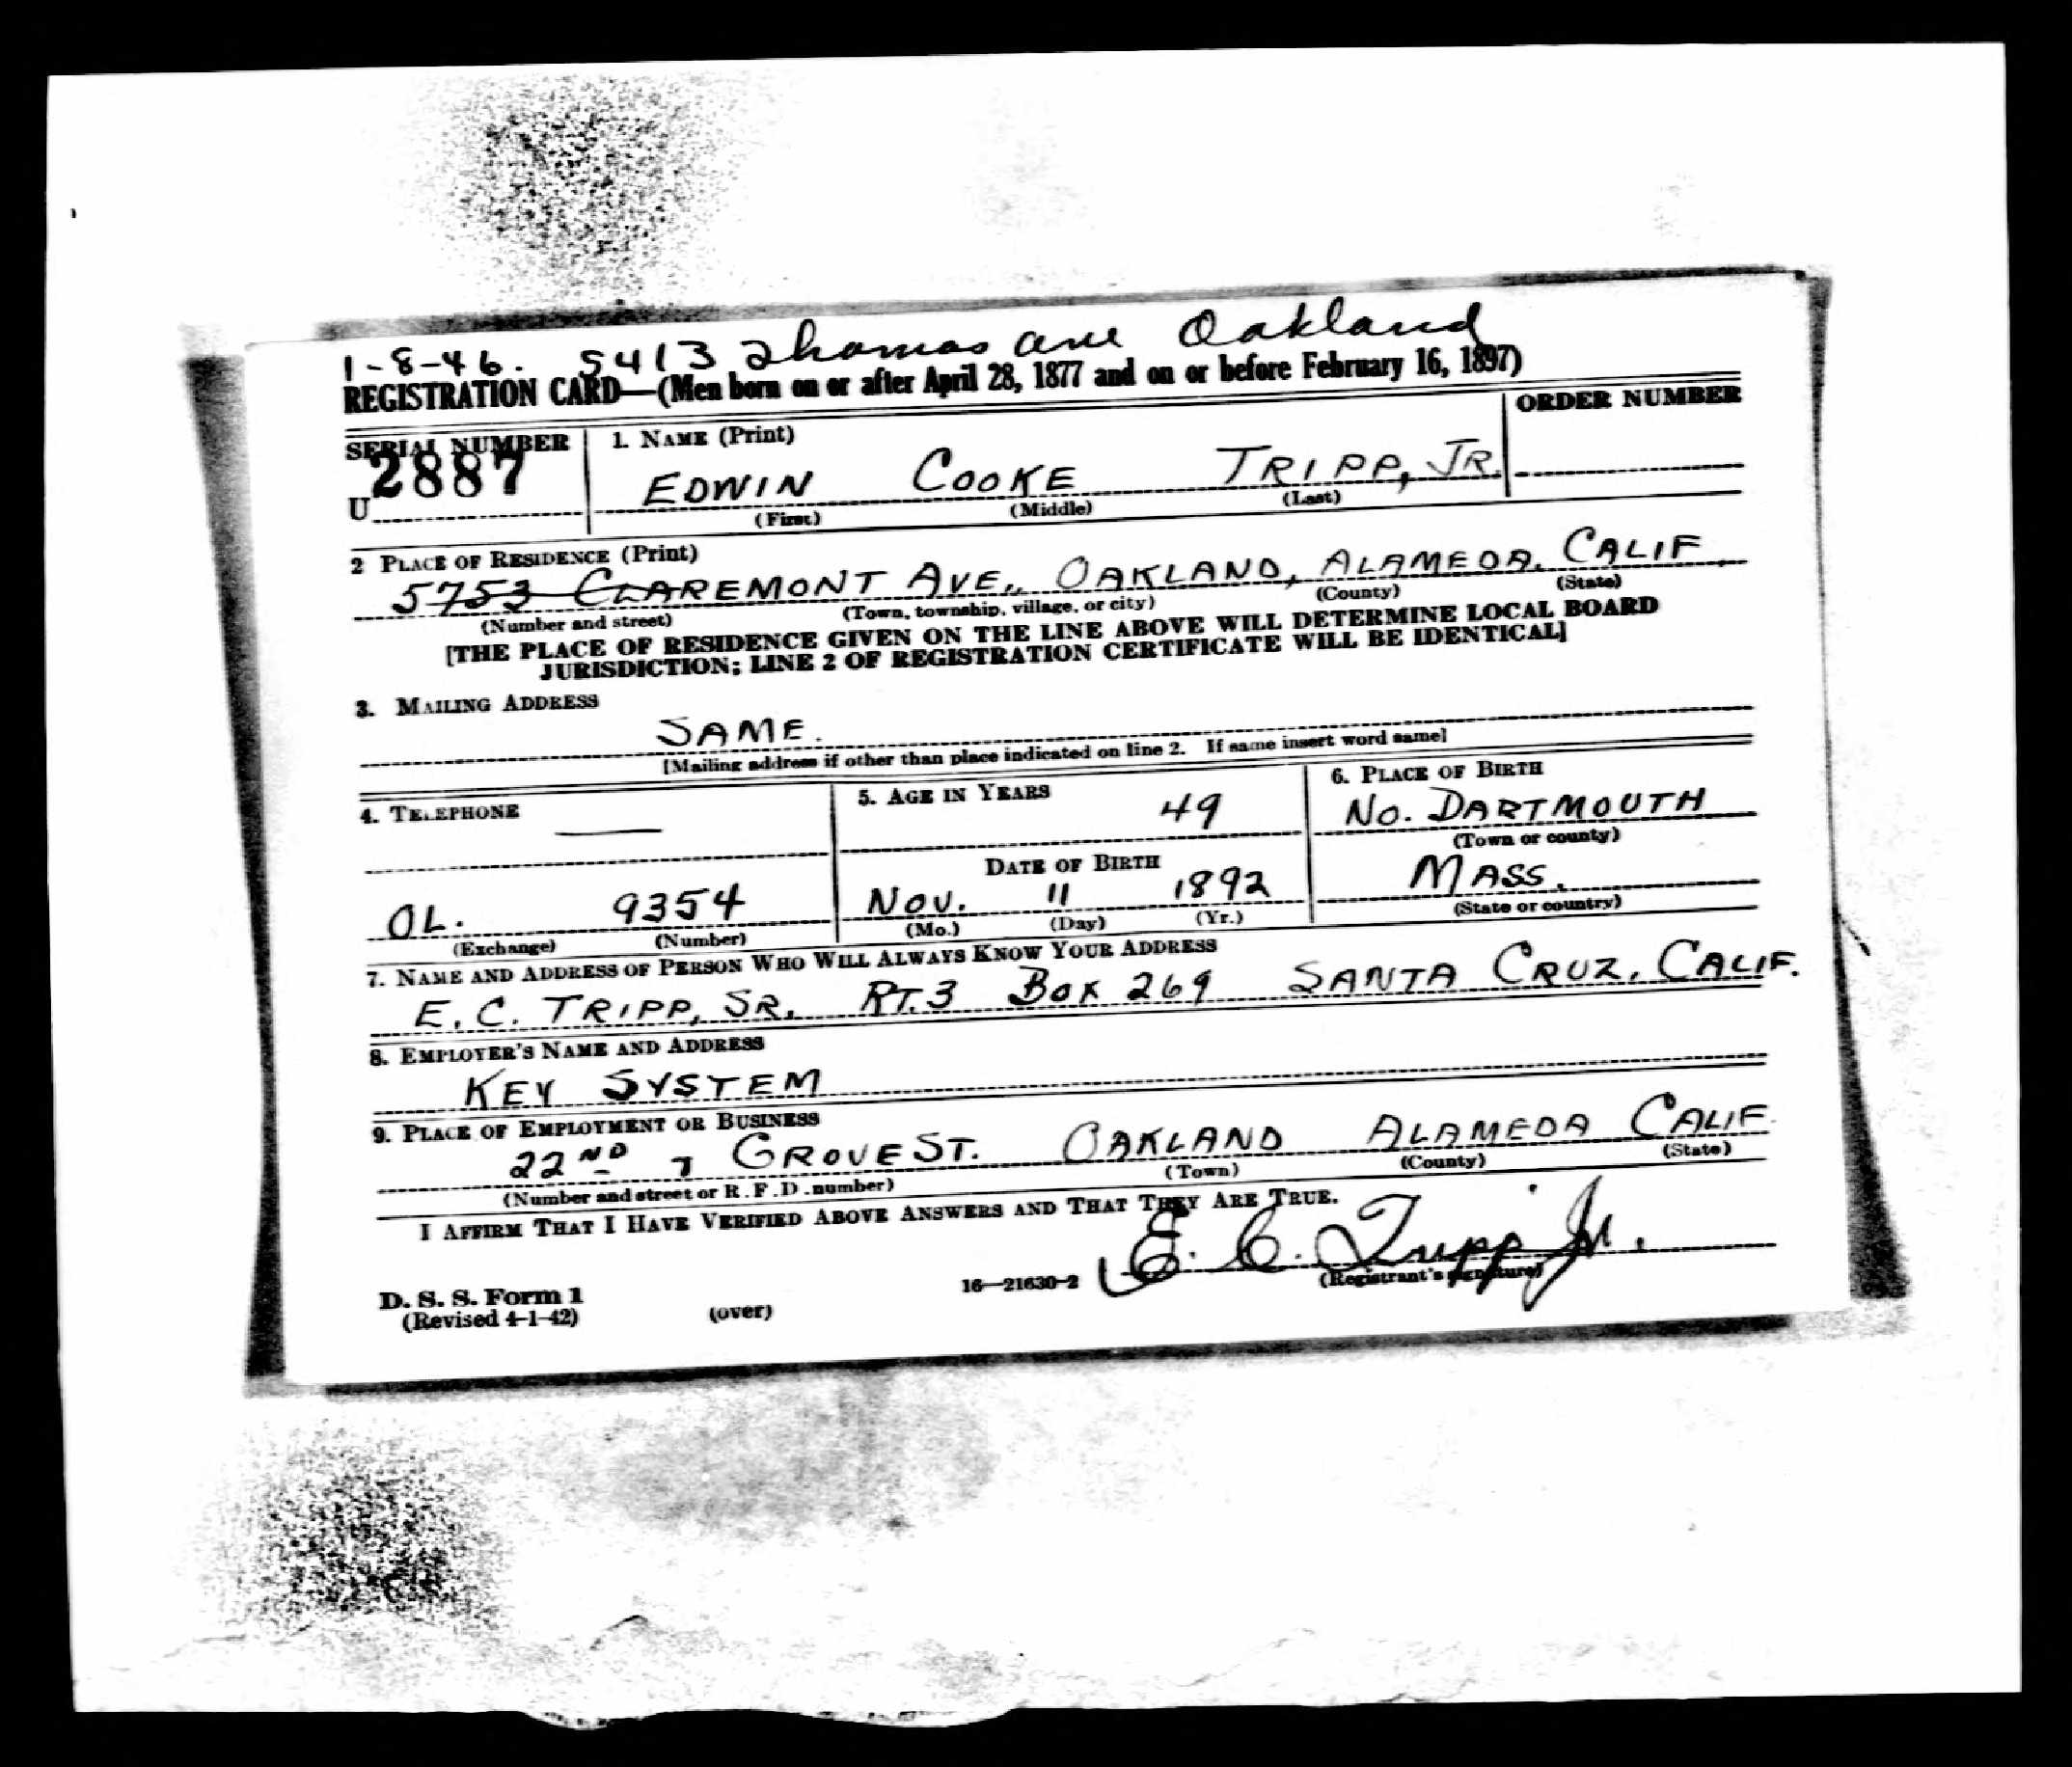 1-8-46. 5413 Thomas ave Oakland
REGISTRATION CARD—(Men born on or after April 28, 1877 and on or before February 16, 1897)
SERIAL NUMBER 1. NAME (Print) ORDER NUMBER
U 2887 EDWIN COOKE TRIPP, JR.
(First) (Middle) (Last)
2 PLACE OF RESIDENCE (Print)
5753 CLAREMONT AVE., OAKLAND, ALAMEDA. CALIF.
(Number and street) (Town, township, village, or city) (County) (State)
[THE PLACE OF RESIDENCE GIVEN ON THE LINE ABOVE WILL DETERMINE LOCAL BOARD
JURISDICTION; LINE 2 OF REGISTRATION CERTIFICATE WILL BE IDENTICAL]
3. MAILING ADDRESS
SAME.
[Mailing address if other than place indicated on line 2. If same insert word same]
4. TELEPHONE 5. AGE IN YEARS 6. PLACE OF BIRTH
— 49 NO. DARTMOUTH
(Town or county)
DATE OF BIRTH
OL. 9354 NOV. 11 1892 MASS.
(Exchange) (Number) (Mo.) (Day) (Yr.) (State or country)
7. NAME AND ADDRESS OF PERSON WHO WILL ALWAYS KNOW YOUR ADDRESS
E. C. TRIPP, SR. RT. 3 BOX 269 SANTA CRUZ, CALIF.
8. EMPLOYER'S NAME AND ADDRESS
KEY SYSTEM
9. PLACE OF EMPLOYMENT OR BUSINESS
22ND GROVE ST. OAKLAND ALAMEDA CALIF.
(Number and street or R.F.D. number) (Town) (County) (State)
I AFFIRM THAT I HAVE VERIFIED ABOVE ANSWERS AND THAT THEY ARE TRUE.
E. C. Tripp Jr.
D. S. S. Form 1 16—21630-2 (Registrant's signature)
(Revised 4-1-42) (over)